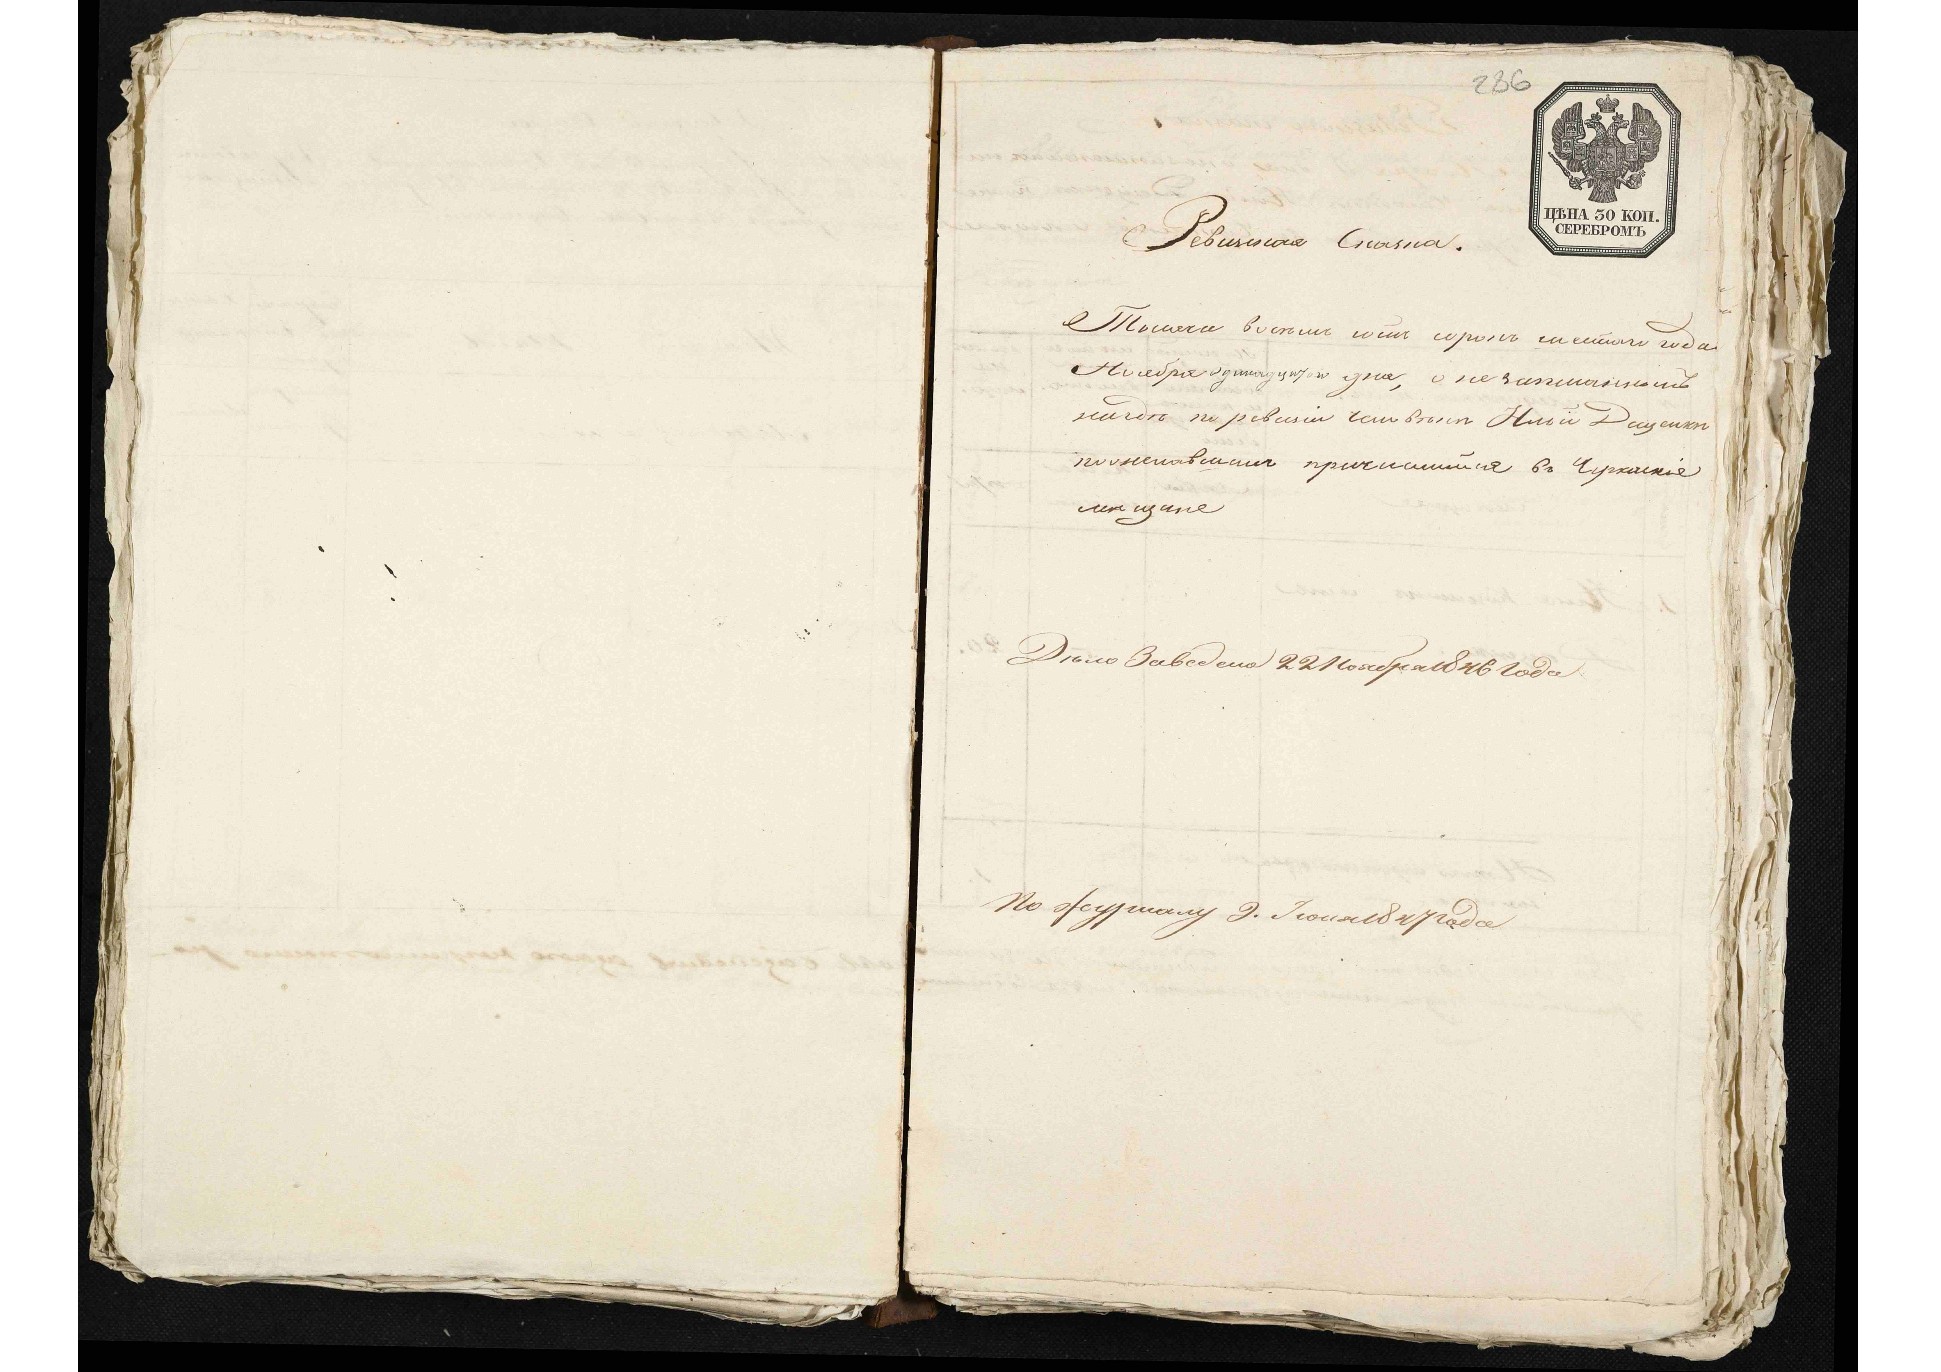 236
ЦѢНА 30 КОП.
СЕРЕБРОМЪ
Ревизская Сказка.
Тысяча восемь сотъ сорокъ шестого года
Ноября одинадцатого дня, о незаписанномъ
нигдѣ по ревизіи человѣкѣ Ильѣ Даценкѣ
пожелавшемъ причислиться въ Черкаскіе
мещане
Дѣло Заведено 22 Ноября 1846 года
По журналу 9. Іюня 1847 года